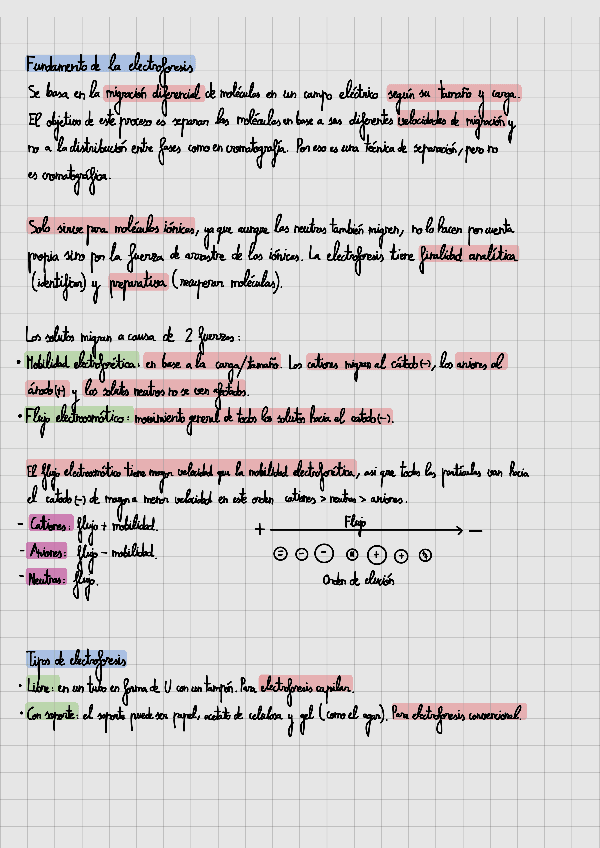 Fundamento de la electroforesis
Se basa en la migración diferencial de moléculas en un campo eléctrico según su tamaño y carga.
El objetivo de este proceso es separar las moléculas en base a sus diferentes velocidades de migración y
no a la distribución entre fases como en cromatografía. Por eso es una técnica de separación, pero no
es cromatográfica.
Solo sirve para moléculas iónicas, ya que aunque las neutras también migren, no lo hacen por cuenta
propia sino por la fuerza de arrastre de las iónicas. La electroforesis tiene finalidad analítica
(identificar) y preparativa (recuperar moléculas).
Los solutos migran a causa de 2 fuerzas:
• Mobilidad electroforética: en base a la carga/tamaño. Los cationes migran al cátodo(-), los aniones al
ánodo(+) y los solutos neutros no se ven afectados.
• Flujo electroosmótico: movimiento general de todos los solutos hacia el catodo(-).
El flujo electroosmótico tiene mayor velocidad que la mobilidad electroforética, asi que todas las partículas van hacia
el catodo(-) de mayor a menor velocidad en este orden cationes > neutros > aniones.
- Cationes: flujo + mobilidad.
- Aniones: flujo - mobilidad.
- Neutros: flujo.
+ Flujo -
Orden de elución
Tipos de electroforesis
• Libre: en un tubo en forma de U con un tampón. Para electroforesis capilar.
• Con soporte: el soporte puede ser papel, acetato de celulosa y gel (como el agar). Para electroforesis convencional.